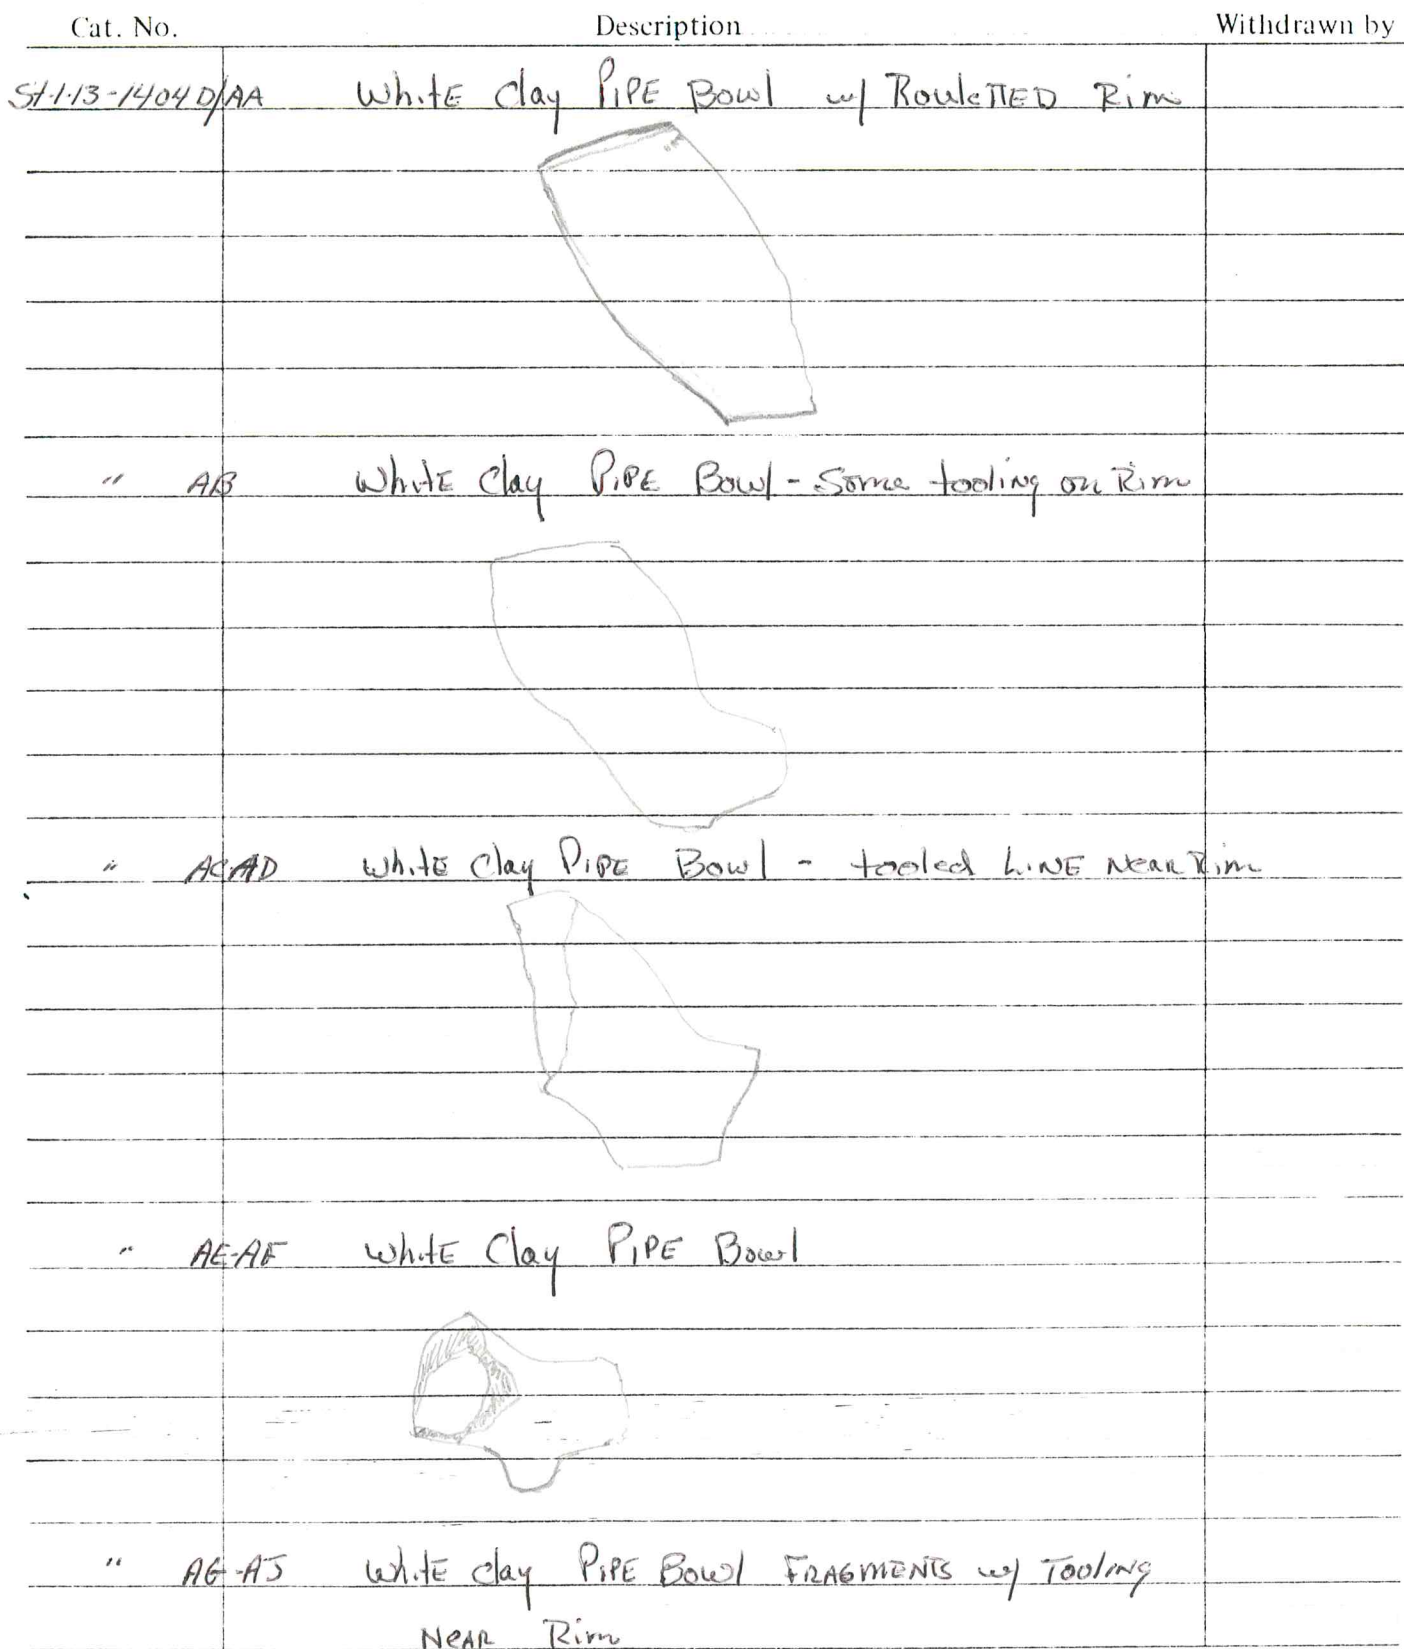 Cat. No. Description Withdrawn by
St-1-13-1404D/AA White Clay PIPE Bowl w/ RouleTTED Rim
" AB White Clay PIPE Bowl - Some tooling on Rim
" AC-AD White Clay PIPE Bowl - tooled LINE NEAR Rim
" AE-AF White Clay PIPE Bowl
" AG-AJ White Clay PIPE Bowl FRAGMENTS w/ Tooling
NEAR Rim